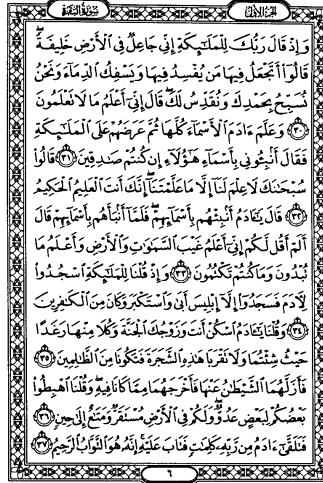 الجزء الأول
سورة البقرة
وَإِذْ قَالَ رَبُّكَ لِلْمَلَٰٓئِكَةِ إِنِّي جَاعِلٌ فِي ٱلْأَرْضِ خَلِيفَةً ۖ
قَالُوٓا۟ أَتَجْعَلُ فِيهَا مَن يُفْسِدُ فِيهَا وَيَسْفِكُ ٱلدِّمَآءَ وَنَحْنُ
نُسَبِّحُ بِحَمْدِكَ وَنُقَدِّسُ لَكَ ۖ قَالَ إِنِّىٓ أَعْلَمُ مَا لَا تَعْلَمُونَ
٣٠ وَعَلَّمَ ءَادَمَ ٱلْأَسْمَآءَ كُلَّهَا ثُمَّ عَرَضَهُمْ عَلَى ٱلْمَلَٰٓئِكَةِ
فَقَالَ أَنۢبِـُٔونِى بِأَسْمَآءِ هَٰٓؤُلَآءِ إِن كُنتُمْ صَٰدِقِينَ ٣١ قَالُوا۟
سُبْحَٰنَكَ لَا عِلْمَ لَنَآ إِلَّا مَا عَلَّمْتَنَآ ۖ إِنَّكَ أَنتَ ٱلْعَلِيمُ ٱلْحَكِيمُ
٣٢ قَالَ يَٰٓـَٔادَمُ أَنۢبِئْهُم بِأَسْمَآئِهِمْ ۖ فَلَمَّآ أَنۢبَأَهُم بِأَسْمَآئِهِمْ قَالَ
أَلَمْ أَقُل لَّكُمْ إِنِّىٓ أَعْلَمُ غَيْبَ ٱلسَّمَٰوَٰتِ وَٱلْأَرْضِ وَأَعْلَمُ مَا
تُبْدُونَ وَمَا كُنتُمْ تَكْتُمُونَ ٣٣ وَإِذْ قُلْنَا لِلْمَلَٰٓئِكَةِ ٱسْجُدُوا۟
لِـَٔادَمَ فَسَجَدُوٓا۟ إِلَّآ إِبْلِيسَ أَبَىٰ وَٱسْتَكْبَرَ وَكَانَ مِنَ ٱلْكَٰفِرِينَ
٣٤ وَقُلْنَا يَٰٓـَٔادَمُ ٱسْكُنْ أَنتَ وَزَوْجُكَ ٱلْجَنَّةَ وَكُلَا مِنْهَا رَغَدًا
حَيْثُ شِئْتُمَا وَلَا تَقْرَبَا هَٰذِهِ ٱلشَّجَرَةَ فَتَكُونَا مِنَ ٱلظَّٰلِمِينَ ٣٥
فَأَزَلَّهُمَا ٱلشَّيْطَٰنُ عَنْهَا فَأَخْرَجَهُمَا مِمَّا كَانَا فِيهِ ۖ وَقُلْنَا ٱهْبِطُوا۟
بَعْضُكُمْ لِبَعْضٍ عَدُوٌّ ۖ وَلَكُمْ فِى ٱلْأَرْضِ مُسْتَقَرٌّ وَمَتَٰعٌ إِلَىٰ حِينٍ ٣٦
فَتَلَقَّىٰٓ ءَادَمُ مِن رَّبِّهِۦ كَلِمَٰتٍ فَتَابَ عَلَيْهِ ۚ إِنَّهُۥ هُوَ ٱلتَّوَّابُ ٱلرَّحِيمُ ٣٧
٦